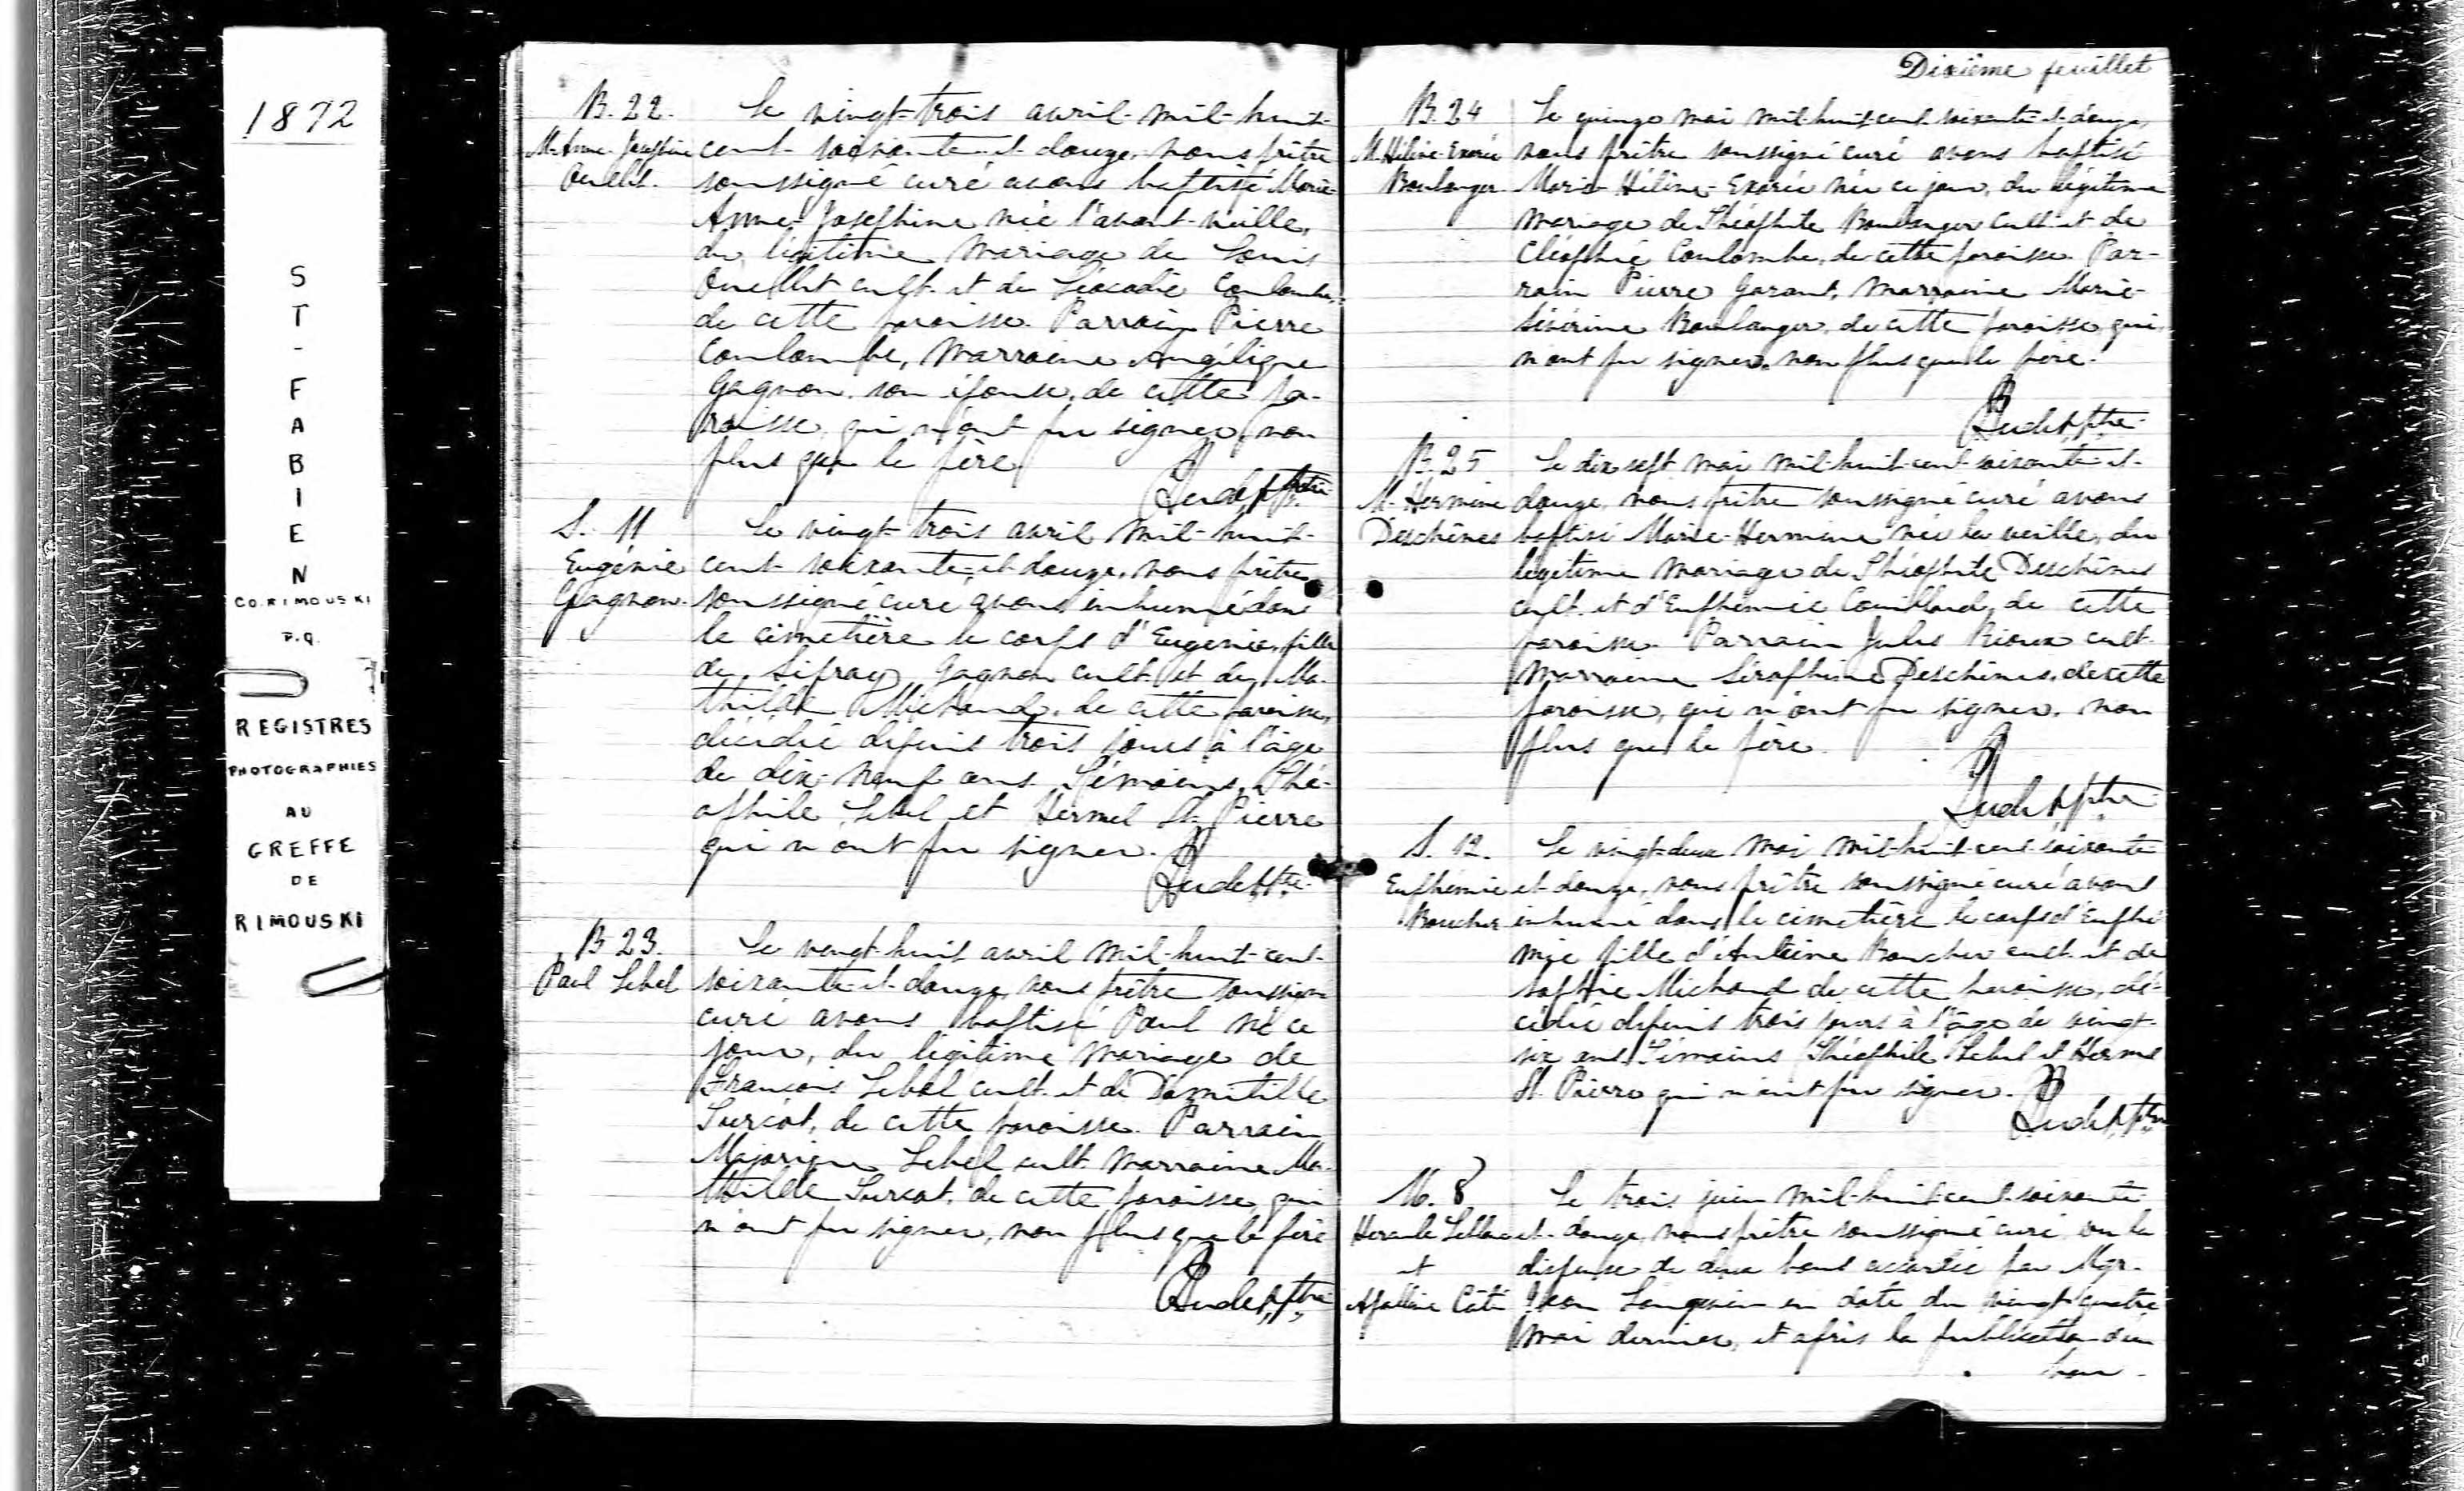 1872
ST-FABIEN
CO. RIMOUSKI
P.Q.
REGISTRES
PHOTOGRAPHIES
AU
GREFFE
DE
RIMOUSKI
B. 22.
M. Anne-Josephine
Ouellet.
Le vingt-trois avril mil-huit-
cent soixante-et-douze, nous prêtre
soussigné curé avons baptisé Marie-
Anne-Josephine née l'avant-veille,
du légitime mariage de Louis
Ouellet cult. et de Léocadie Coulombe,
de cette paroisse. Parrain Pierre
Coulombe, Marraine Angélique
Gagnon, son épouse, de cette pa-
roisse, qui n'ont pu signer, non
plus que le père.
Ptre
S. 11
Eugénie
Gagnon.
Le vingt-trois avril mil-huit-
cent soixante-et-douze, nous prêtre
soussigné curé avons inhumé dans
le cimetière le corps d'Eugénie, fille
de Sifray Gagnon cult. et de Ma-
thilde Michaud, de cette paroisse,
décédée depuis trois jours à l'âge
de dix-neuf ans. Témoins, Thé-
ophile Lebel et Hermel St. Pierre
qui n'ont pu signer.
Ptre
B 23.
Paul Lebel
Le vingt-huit avril mil-huit-cent-
soixante-et-douze, nous prêtre soussigné
curé avons baptisé Paul né ce
jour, du légitime mariage de
François Lebel cult. et de Domitille
Turcot, de cette paroisse. Parrain
Majorique Lebel cult. Marraine Ma-
thilde Turcot, de cette paroisse, qui
n'ont pu signer, non plus que le père
Ptre
Dixième feuillet
B. 24
M. Hélène-Exorée
Boulanger
Le quinze mai mil-huit-cent-soixante-et-douze,
nous prêtre soussigné curé avons baptisé
Marie-Hélène-Exorée née ce jour, du légitime
mariage de Théophile Boulanger cult. et de
Cléophée Coulombe, de cette paroisse. Par-
rain Pierre Garant, Marraine Marie-
Séverine Boulanger, de cette paroisse, qui
n'ont pu signer, non plus que le père.
Ptre
B. 25
M. Hermine
Deschênes
Le dix-sept mai mil-huit-cent-soixante-et-
douze, nous prêtre soussigné curé avons
baptisé Marie-Hermine née la veille, du
légitime mariage de Théophile Deschênes
cult. et d'Euphémie Couillard, de cette
paroisse. Parrain Jules Rioux cult.
Marraine Séraphine Deschênes, de cette
paroisse, qui n'ont pu signer, non
plus que le père.
Ptre
S. 12.
Euphémie
Boucher
Le vingt-deux mai mil-huit-cent-soixante
et-douze, nous prêtre soussigné curé avons
inhumé dans le cimetière le corps d'Euphé
mie fille d'Antoine Boucher cult. et de
Sophie Michaud de cette paroisse, dé-
cédée depuis trois jours à l'âge de vingt-
six ans. Témoins Théophile Lebel et Hermel
St. Pierre qui n'ont pu signer.
Ptre
M. 8
Hercule
et
Apolline Côté
Le trois juin mil-huit-cent-soixante
et-douze, nous prêtre soussigné curé, vu la
dispense de deux bans accordée par Mgr.
Jean Langevin en date du vingt-quatre
mai dernier, et après la publication d'un
ban